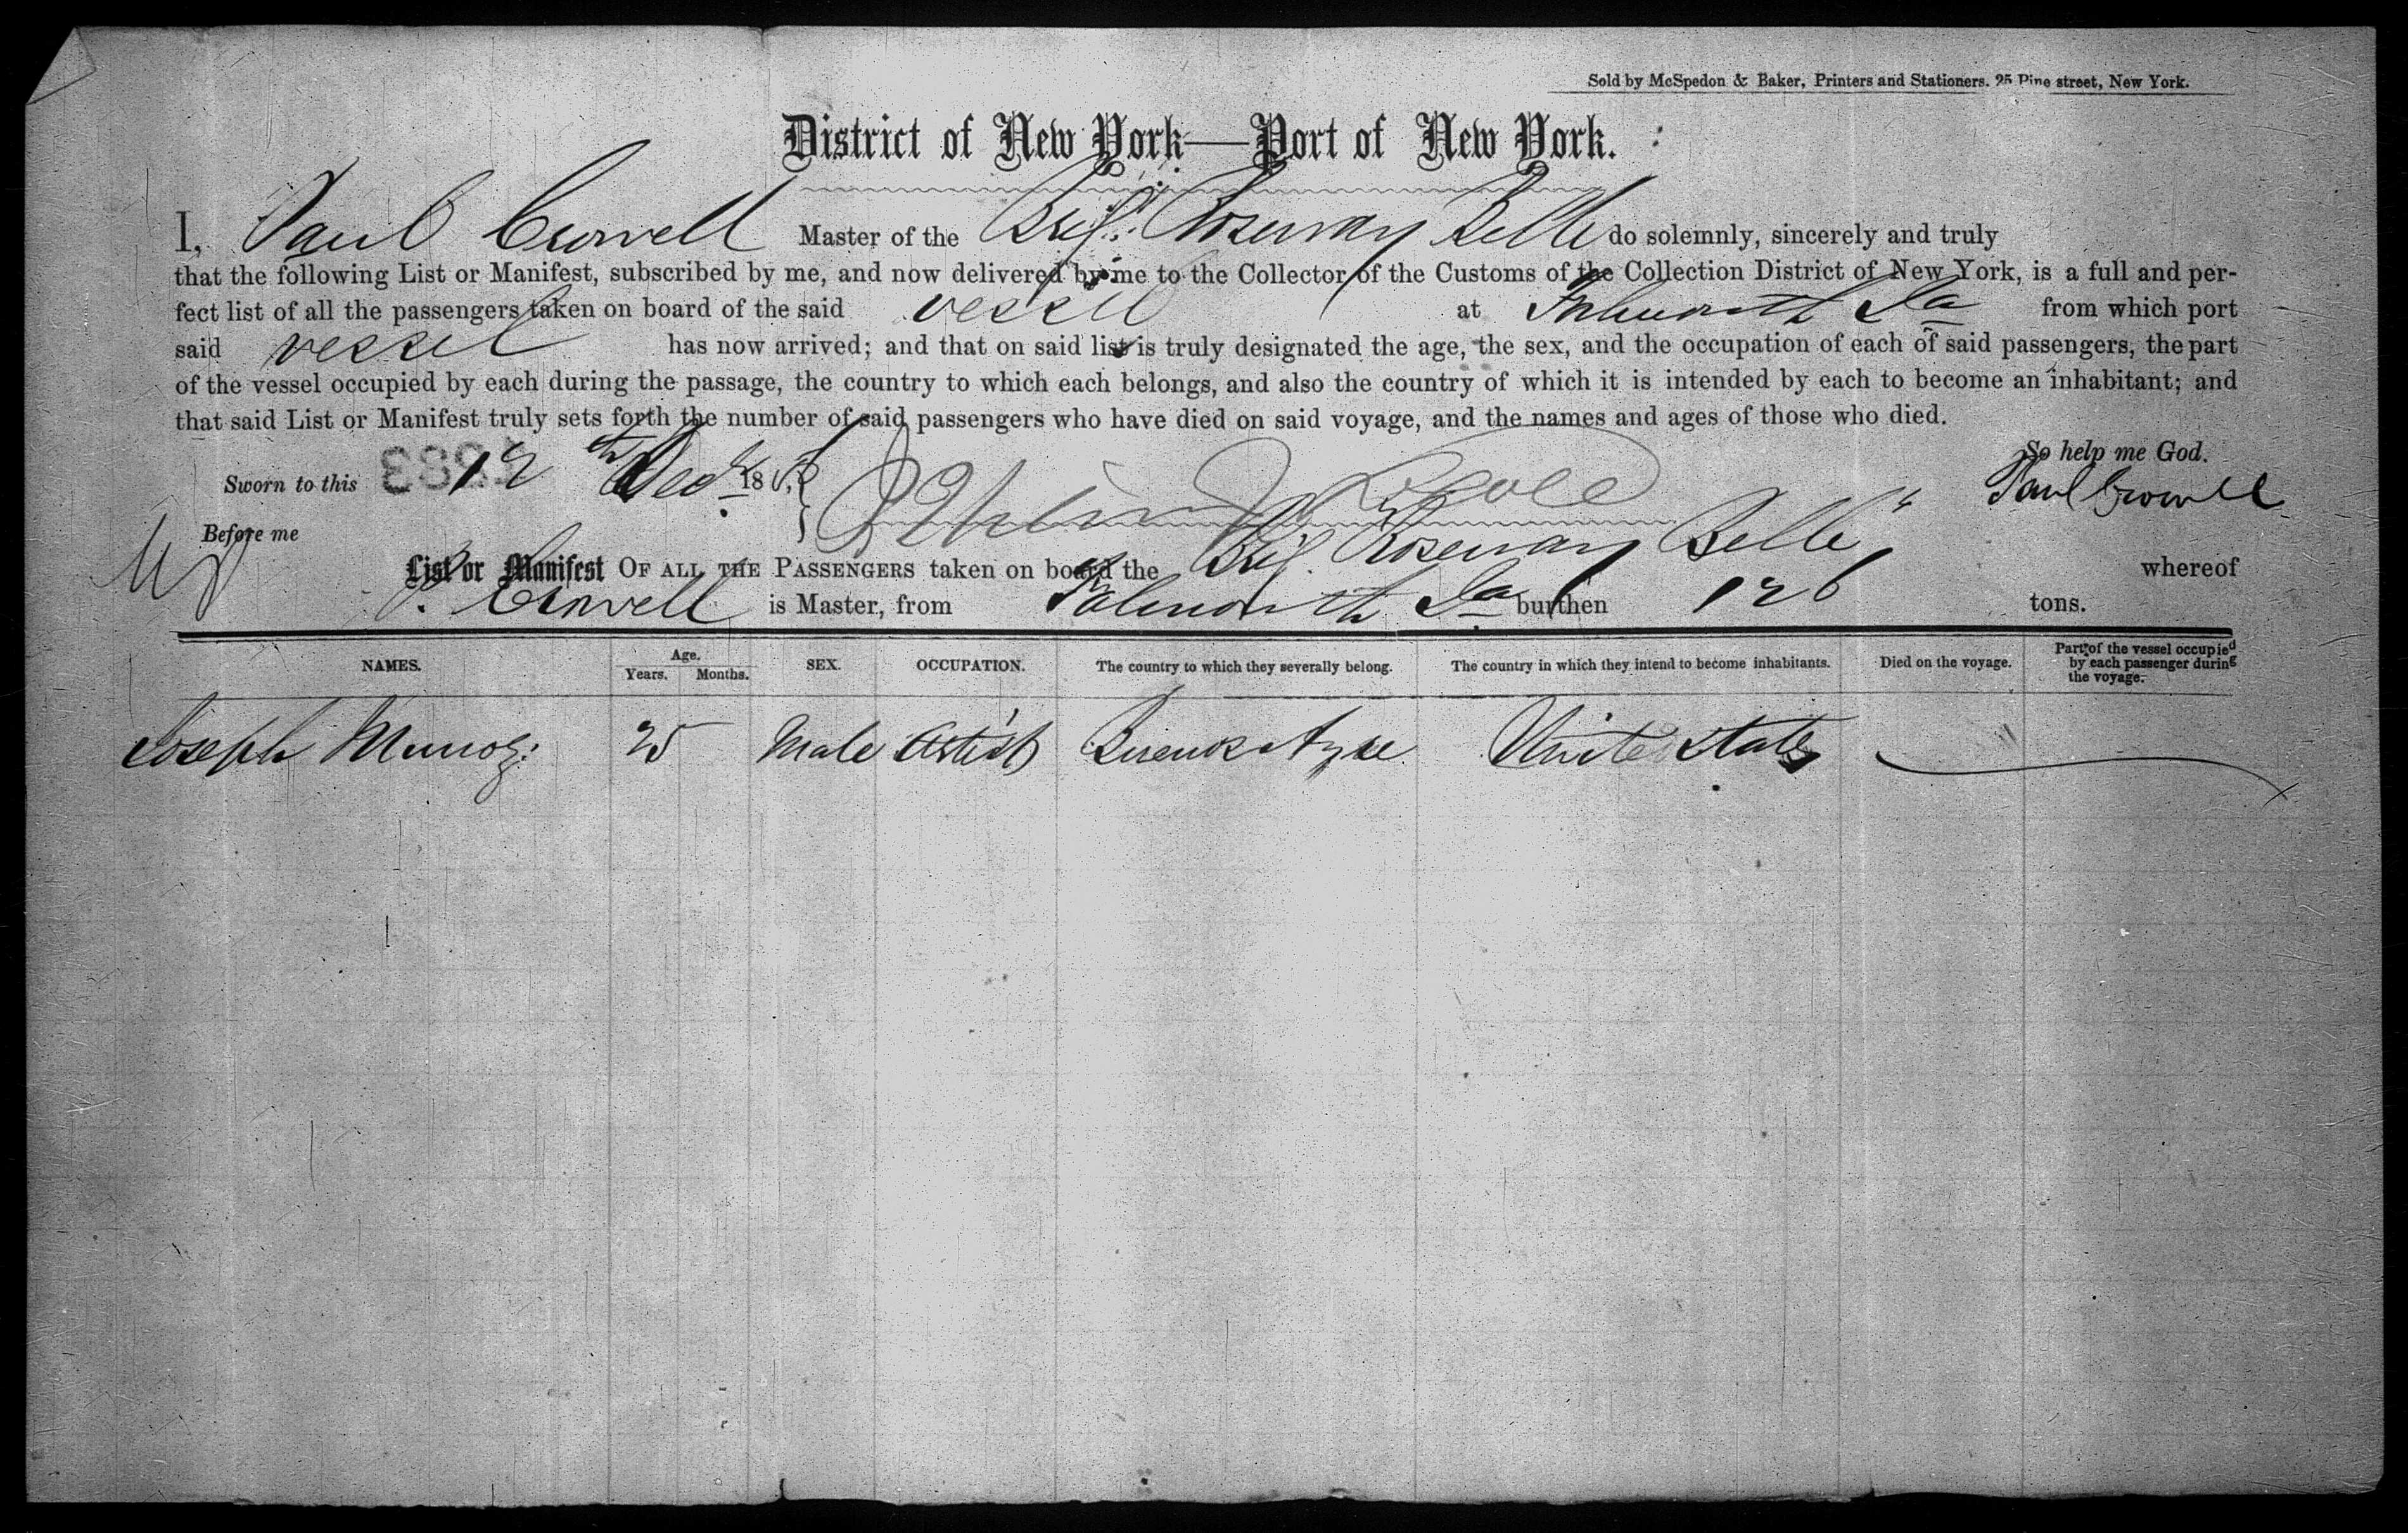 Sold by McSpedon & Baker, Printers and Stationers. 25 Pine street, New York.
District of New York—Port of New York.
I, Paul Crowell Master of the Brig. Rosemary Belle do solemnly, sincerely and truly
that the following List or Manifest, subscribed by me, and now delivered by me to the Collector of the Customs of the Collection District of New York, is a full and per-
fect list of all the passengers taken on board of the said vessel at Falmouth Ja from which port
said vessel has now arrived; and that on said list is truly designated the age, the sex, and the occupation of each of said passengers, the part
of the vessel occupied by each during the passage, the country to which each belongs, and also the country of which it is intended by each to become an inhabitant; and
that said List or Manifest truly sets forth the number of said passengers who have died on said voyage, and the names and ages of those who died.
So help me God.
Sworn to this 12th Dec 18
Paul Crowell
Before me
List or Manifest OF ALL THE PASSENGERS taken on board the Brig. Rosemary Belle" whereof
P. Crowell is Master, from Falmouth Ja burthen 126 tons.
NAMES. Age. Years. Months. SEX. OCCUPATION. The country to which they severally belong. The country in which they intend to become inhabitants. Died on the voyage. Part of the vessel occupied by each passenger during the voyage.
Joseph Munoz 25 Male Artist Buenos Ayre United States